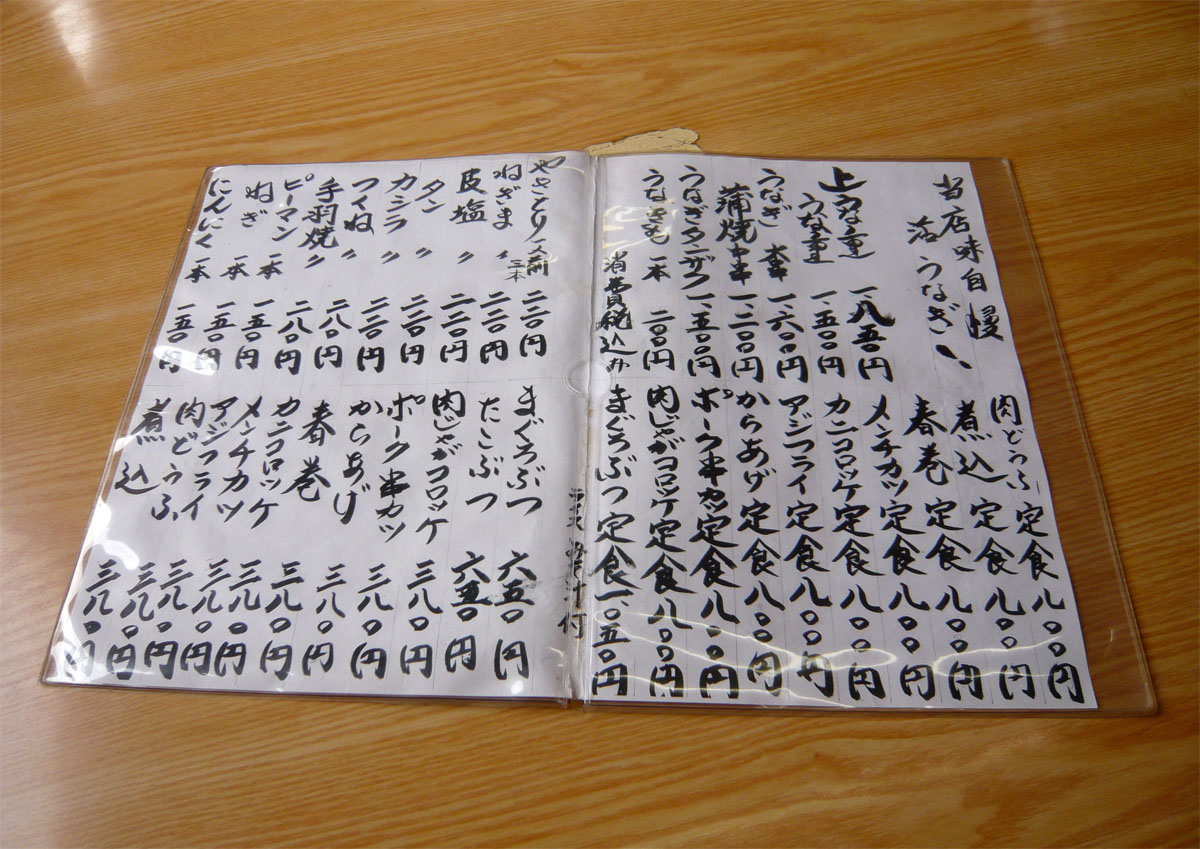 当店味自慢
活うなぎ
上うな重 一、八五円
うな重 一、五〇〇円
うなぎ 一、六〇〇円
蒲焼中串 一、二〇〇円
うなぎタンザク 一、五〇〇円
うなきも 一本 二〇〇円
消費税込み
肉どうふ定食 八〇〇円
煮込定食 八〇〇円
春巻定食 八〇〇円
メンチカツ定食 八〇〇円
カニコロッケ定食 八〇〇円
アジフライ定食 八〇〇円
からあげ定食 八〇〇円
ポーク串カツ定食 八〇〇円
肉じゃがコロッケ定食 八〇〇円
まぐろぶつ定食 一、〇五〇円
みそ汁付
やきとり一人前 二二〇円
ねぎま 〃 三本 二二〇円
皮塩 〃 二二〇円
タン 〃 二二〇円
カシラ 〃 二二〇円
つくね 〃 二八〇円
手羽焼 〃 二八〇円
ピーマン 一本 一五〇円
ねぎ 一本 一五〇円
にんにく 一本 一五〇円
まぐろぶつ 六五〇円
たこぶつ 六五〇円
肉じゃがコロッケ 三八〇円
ポーク串カツ 三八〇円
からあげ 三八〇円
春巻 三八〇円
カニコロッケ 三八〇円
メンチカツ 三八〇円
アジフライ 三八〇円
肉どうふ 三八〇円
煮込 三八〇円